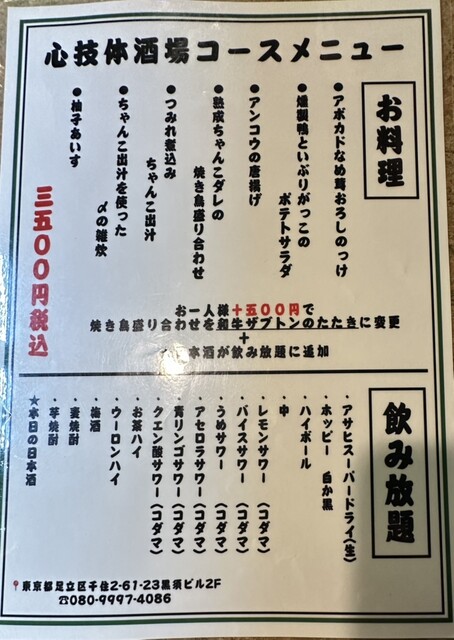 心技体酒場コースメニュー
お料理
●アボカドなめ茸おろしのっけ
●燻製鴨といぶりがっこの
ポテトサラダ
●アンコウの唐揚げ
●熟成ちゃんこダレの
焼き鳥盛り合わせ
●つみれ煮込み
ちゃんこ出汁
●ちゃんこ出汁を使った
〆の雑炊
●柚子あいす
三五〇〇円税込
お一人様+五〇〇円で
焼き鳥盛り合わせを和牛ザブトンのたたきに変更
+
本酒が飲み放題に追加
飲み放題
・アサヒスーパードライ(生)
・ホッピー 白か黒
・ハイボール
・中
・レモンサワー(コダマ)
・バイスサワー(コダマ)
・うめサワー(コダマ)
・アセロラサワー(コダマ)
・青リンゴサワー(コダマ)
・クエン酸サワー(コダマ)
・お茶ハイ
・ウーロンハイ
・梅酒
・麦焼酎
・芋焼酎
★本日の日本酒
東京都足立区千住2-61-23黒須ビル2F
☎080-9997-4086